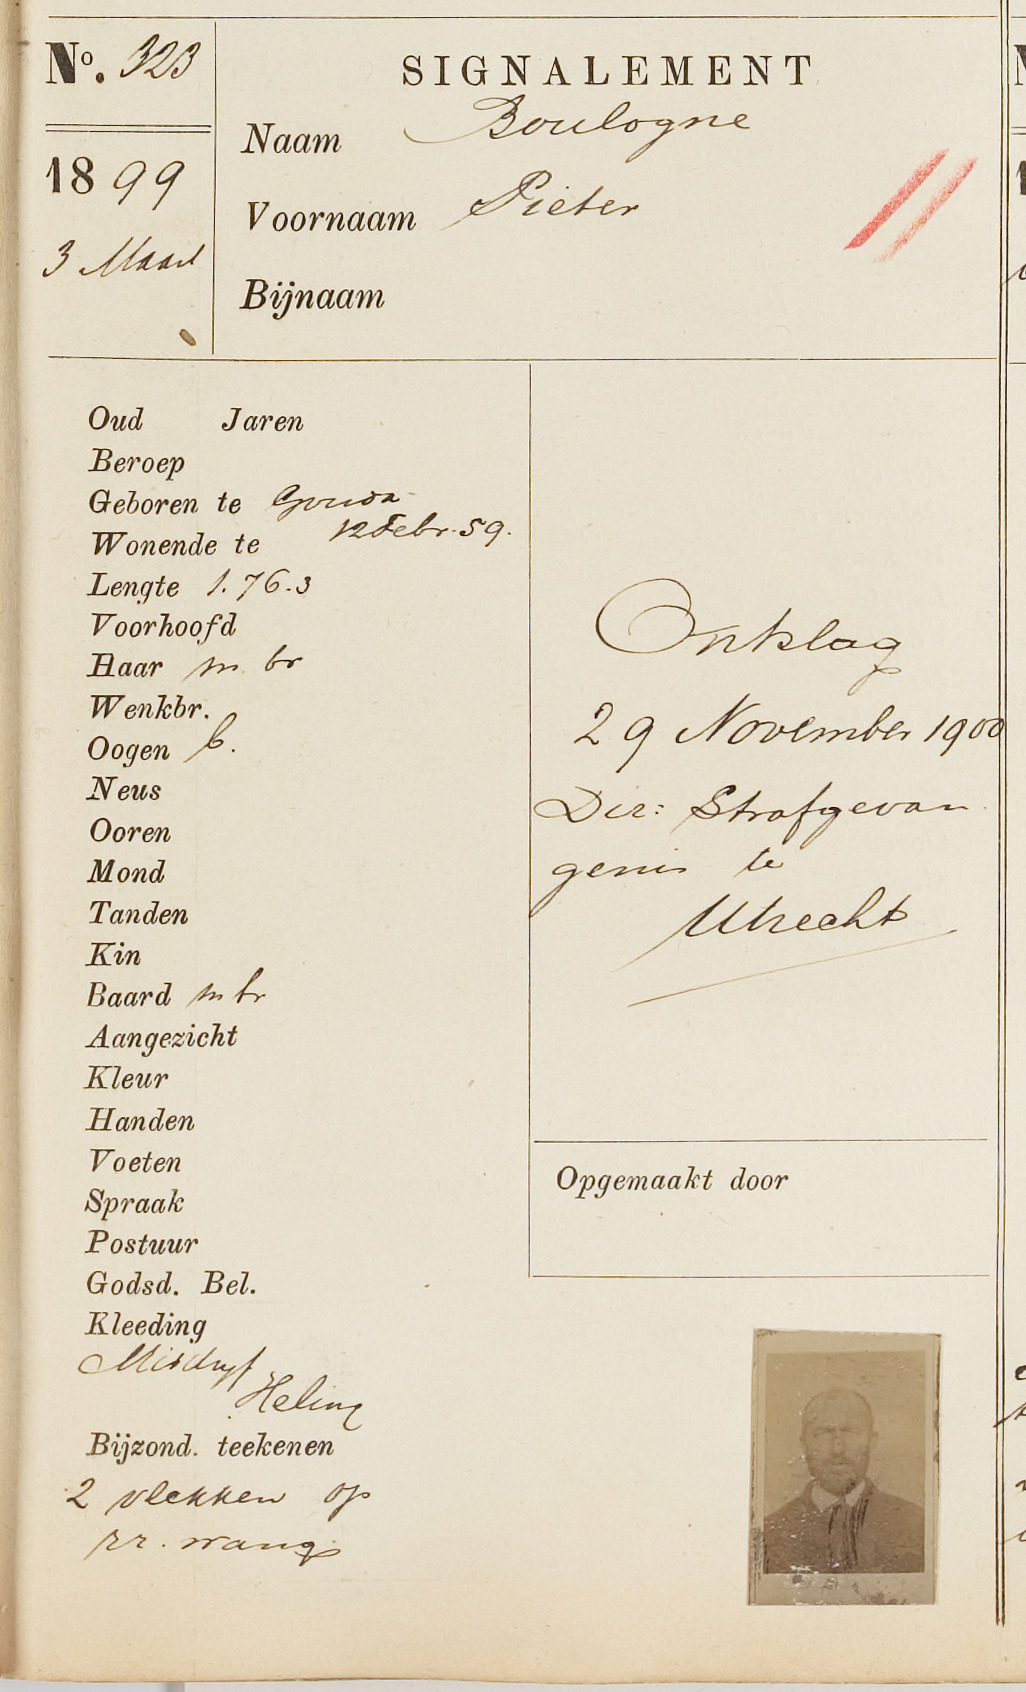 No. 323
SIGNALEMENT
Naam Boulogne
1899
Voornaam Pieter
3 Maart
Bijnaam
Oud Jaren
Beroep
Geboren te Gouda
12 Febr. 59.
Wonende te
Lengte 1.76.3
Voorhoofd
Haar m. br
Wenkbr.
Oogen b.
Neus
Ooren
Mond
Tanden
Kin
Baard m br
Aangezicht
Kleur
Handen
Voeten
Spraak
Postuur
Godsd. Bel.
Kleeding
Misdryf
Heling
Bijzond. teekenen
2 vlekken op
rr. wang
Ontslag
29 November 1900
Dir: Strafgevan
genis te
Utrecht
Opgemaakt door